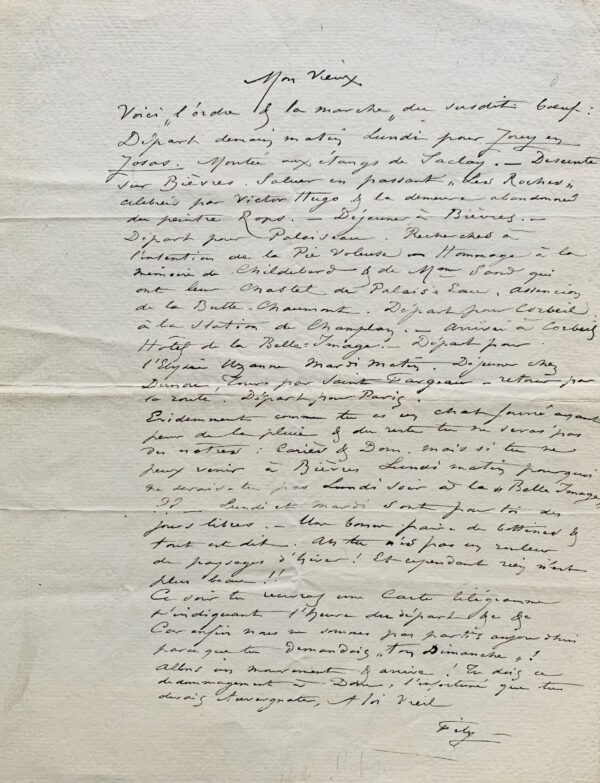 Mon Vieux
Voici "l'ordre & la marche" du susdit bœuf :
Départ demain matin Lundi pour Jouy en
Josas. Montée aux étangs de Saclay. — Descente
sur Bièvres. Saluer en passant "Les Roches"
célébrés par Victor Hugo & la demeure abandonnée
du peintre Rops. — Déjeuner à Bièvres. —
Départ pour Palaiseau. Recherches à
l'intention de la Pie Voleuse — Hommage à la
mémoire de Childebert & de Mme Sand qui
ont leur Chastel de Palais-Eau. Ascension
de la Butte-Chaumont. Départ pour Corbeil
à la station de Champlan. — Arrivée à Corbeil
Hotel de la Belle-Image. — Départ pour
l'Elysée Uzanne Mardi matin. Déjeuner chez
par Saint Fargeau — retour par
sa route. Départ pour Paris.
Evidemment comme tu es un chat fourré ayant
peur de la pluie & du reste tu ne seras pas
des nôtres : Cariès & Dom. mais si tu ne
peux venir à Bièvres Lundi matin pourquoi
ne serais-tu pas Lundi soir à la "Belle Image"
?? — Lundi et Mardi sont pour toi des
jours libres. — Une bonne paire de bottines &
tout est dit. Ah tu n'es pas un
de paysages d'hiver ! Et cependant rien n'est
plus beau !!
Ce soir tu recevras une Carte télégramme
t'indiquant l'heure du départ &c &c
Car enfin nous ne sommes pas partis aujourd'hui
parce que tu demandais "ton Dimanche" !
Allons un mouvement & arrive ! Tu dois ce
dédommagement à Dom, l'infortuné que tu
devais A toi Vieil
Fély